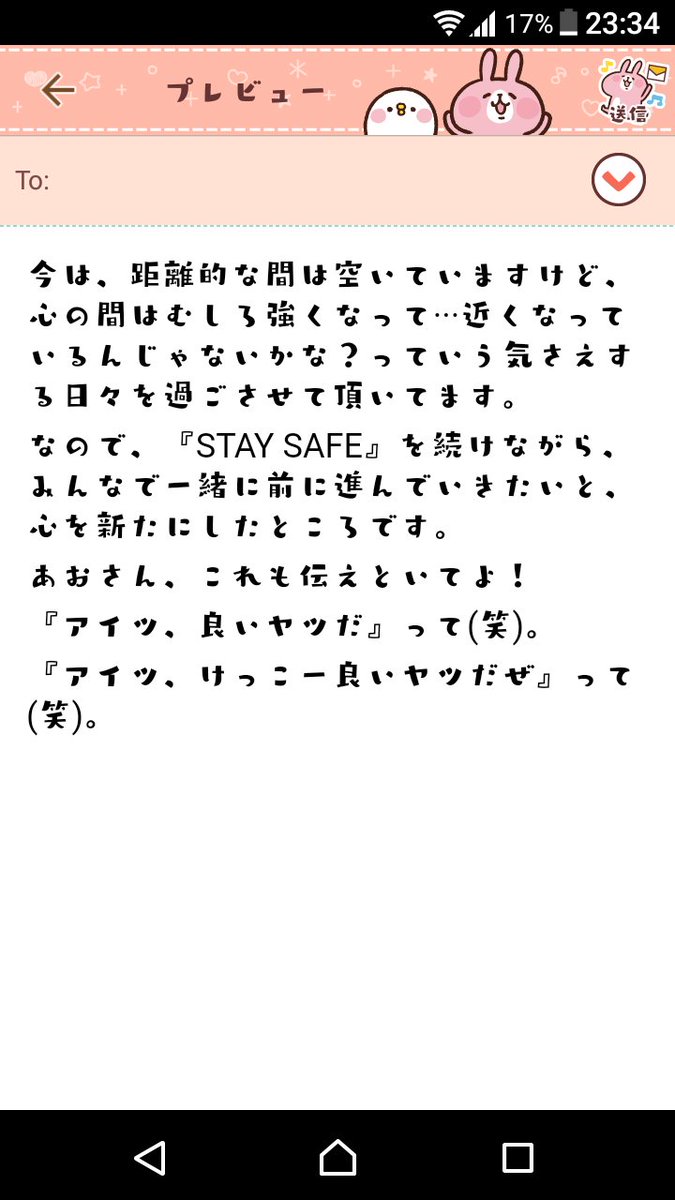 17% 23:34
プレビュー
送信
To:
今は、距離的な間は空いていますけど、
心の間はむしろ強くなって…近くなって
いるんじゃないかな?っていう気さえす
る日々を過ごさせて頂いてます。
なので、『STAY SAFE』を続けながら、
みんなで一緒に前に進んでいきたいと、
心を新たにしたところです。
あおさん、これも伝えといてよ!
『アイツ、良いヤツだ』って(笑)。
『アイツ、けっこー良いヤツだぜ』って
(笑)。